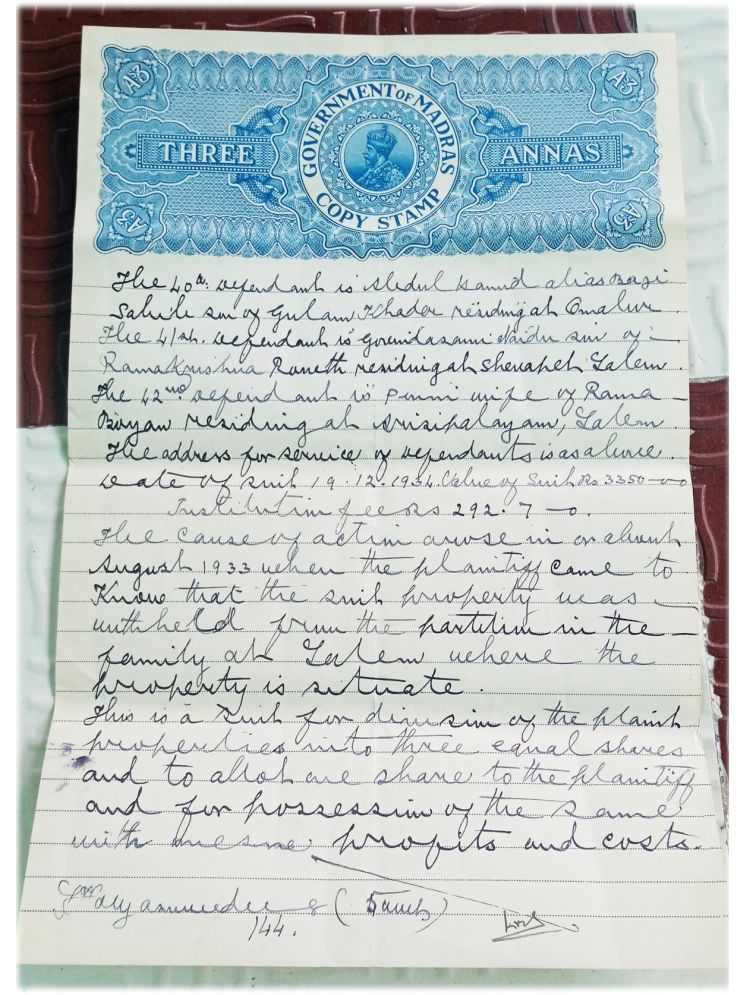 A3 A3
GOVERNMENT OF MADRAS
THREE ANNAS
COPY STAMP
A3 A3
The 40th. Defendant is Abdul Hamid alias Bagi
Sahib son of Gulam Khader residing at Omalur.
The 41st. Defendant is Govindasami Naidu son of
Ramakrishna residing at Shevapet Salem.
The 42nd Defendant is Punni wife of Rama
Boyan residing at Arisipalayam, Salem.
The address for service of Defendants is as above.
Date of suit 19.12.1934. Value of Suit Rs 3350-0-0
Institution fee Rs 292.7-0.
The cause of action arose in or about
August 1933 when the plaintiff came to
Know that the suit property was
withheld from the partition in the
family at Salem where the
property is situate.
This is a suit for division of the plaint
properties into three equal shares
and to allot one share to the plaintiff
and for possession of the same
with mesne profits and costs.
144.